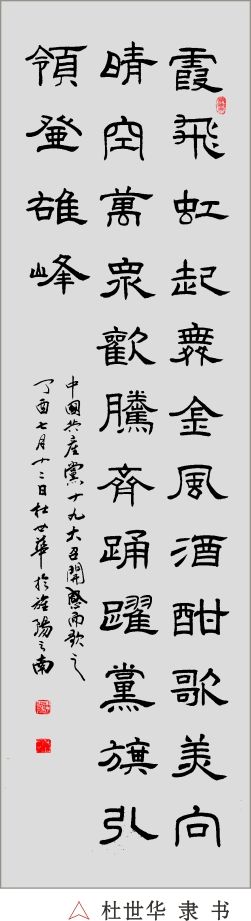 霞飛虹起舞金風酒酣歌美向
晴空萬衆歡騰齊踴躍黨旗引
領登雄峰
中國共產黨十九大召開感而歌之
丁酉七月十二日杜世華於旌陽之南
杜世华 隶 书